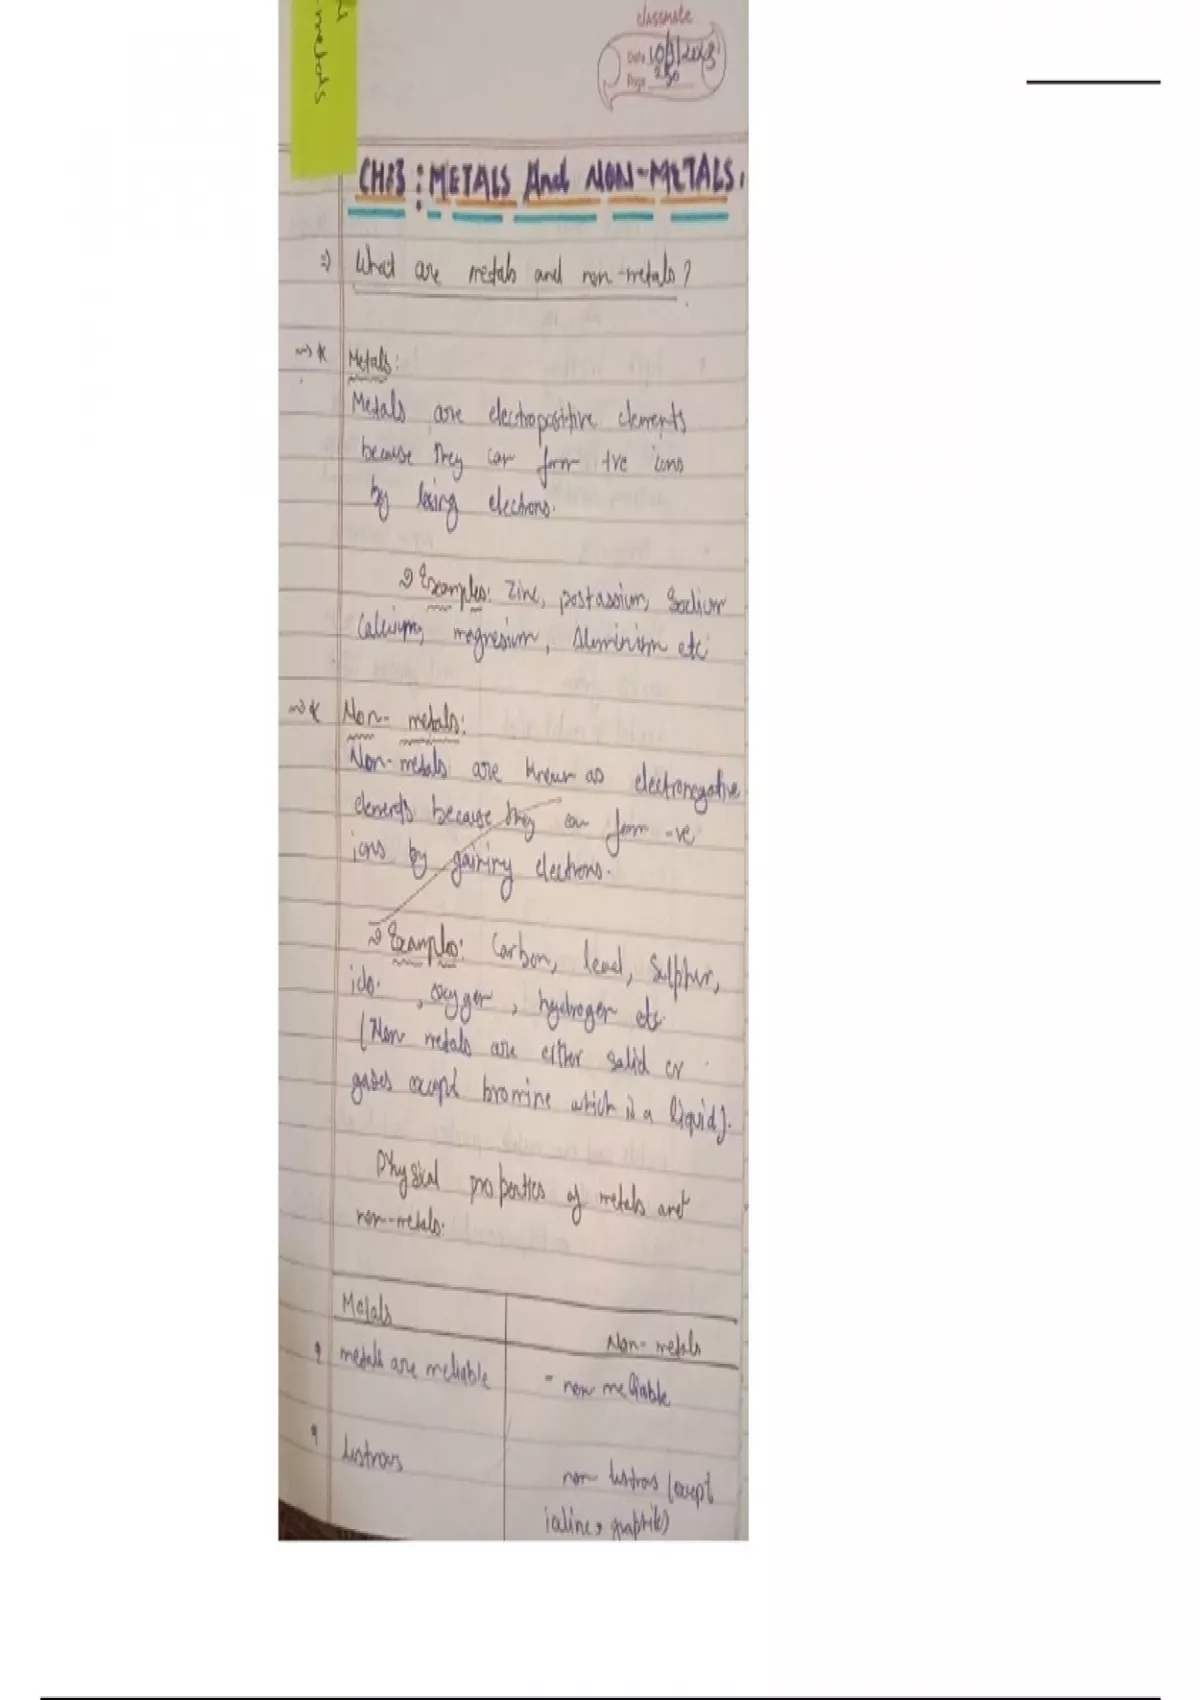 -metals
classmate
Date 10/9/2023
Page 250
CH:3 : METALS And NON-METALS.
What are metals and non-metals?
Metals:
Metals are electropositive elements
because they can form +ve ions
by losing electrons.
Examples: Zinc, postassium, Sodium
Calcium, magnesium, Aluminium etc
Non-metals:
Non-metals are known as electronegative
elements because they can form -ve
ions by gaining electrons.
Examples: Carbon, lead, Sulphur,
, oxygen, hydrogen etc.
(Non metals are either solid or
gases except bromine which is a liquid).
Physical properties of metals and
non-metals.
Metals Non-metals
metals are meliable - non meliable
lustrous non-lustrous (except
iodine, graphite)